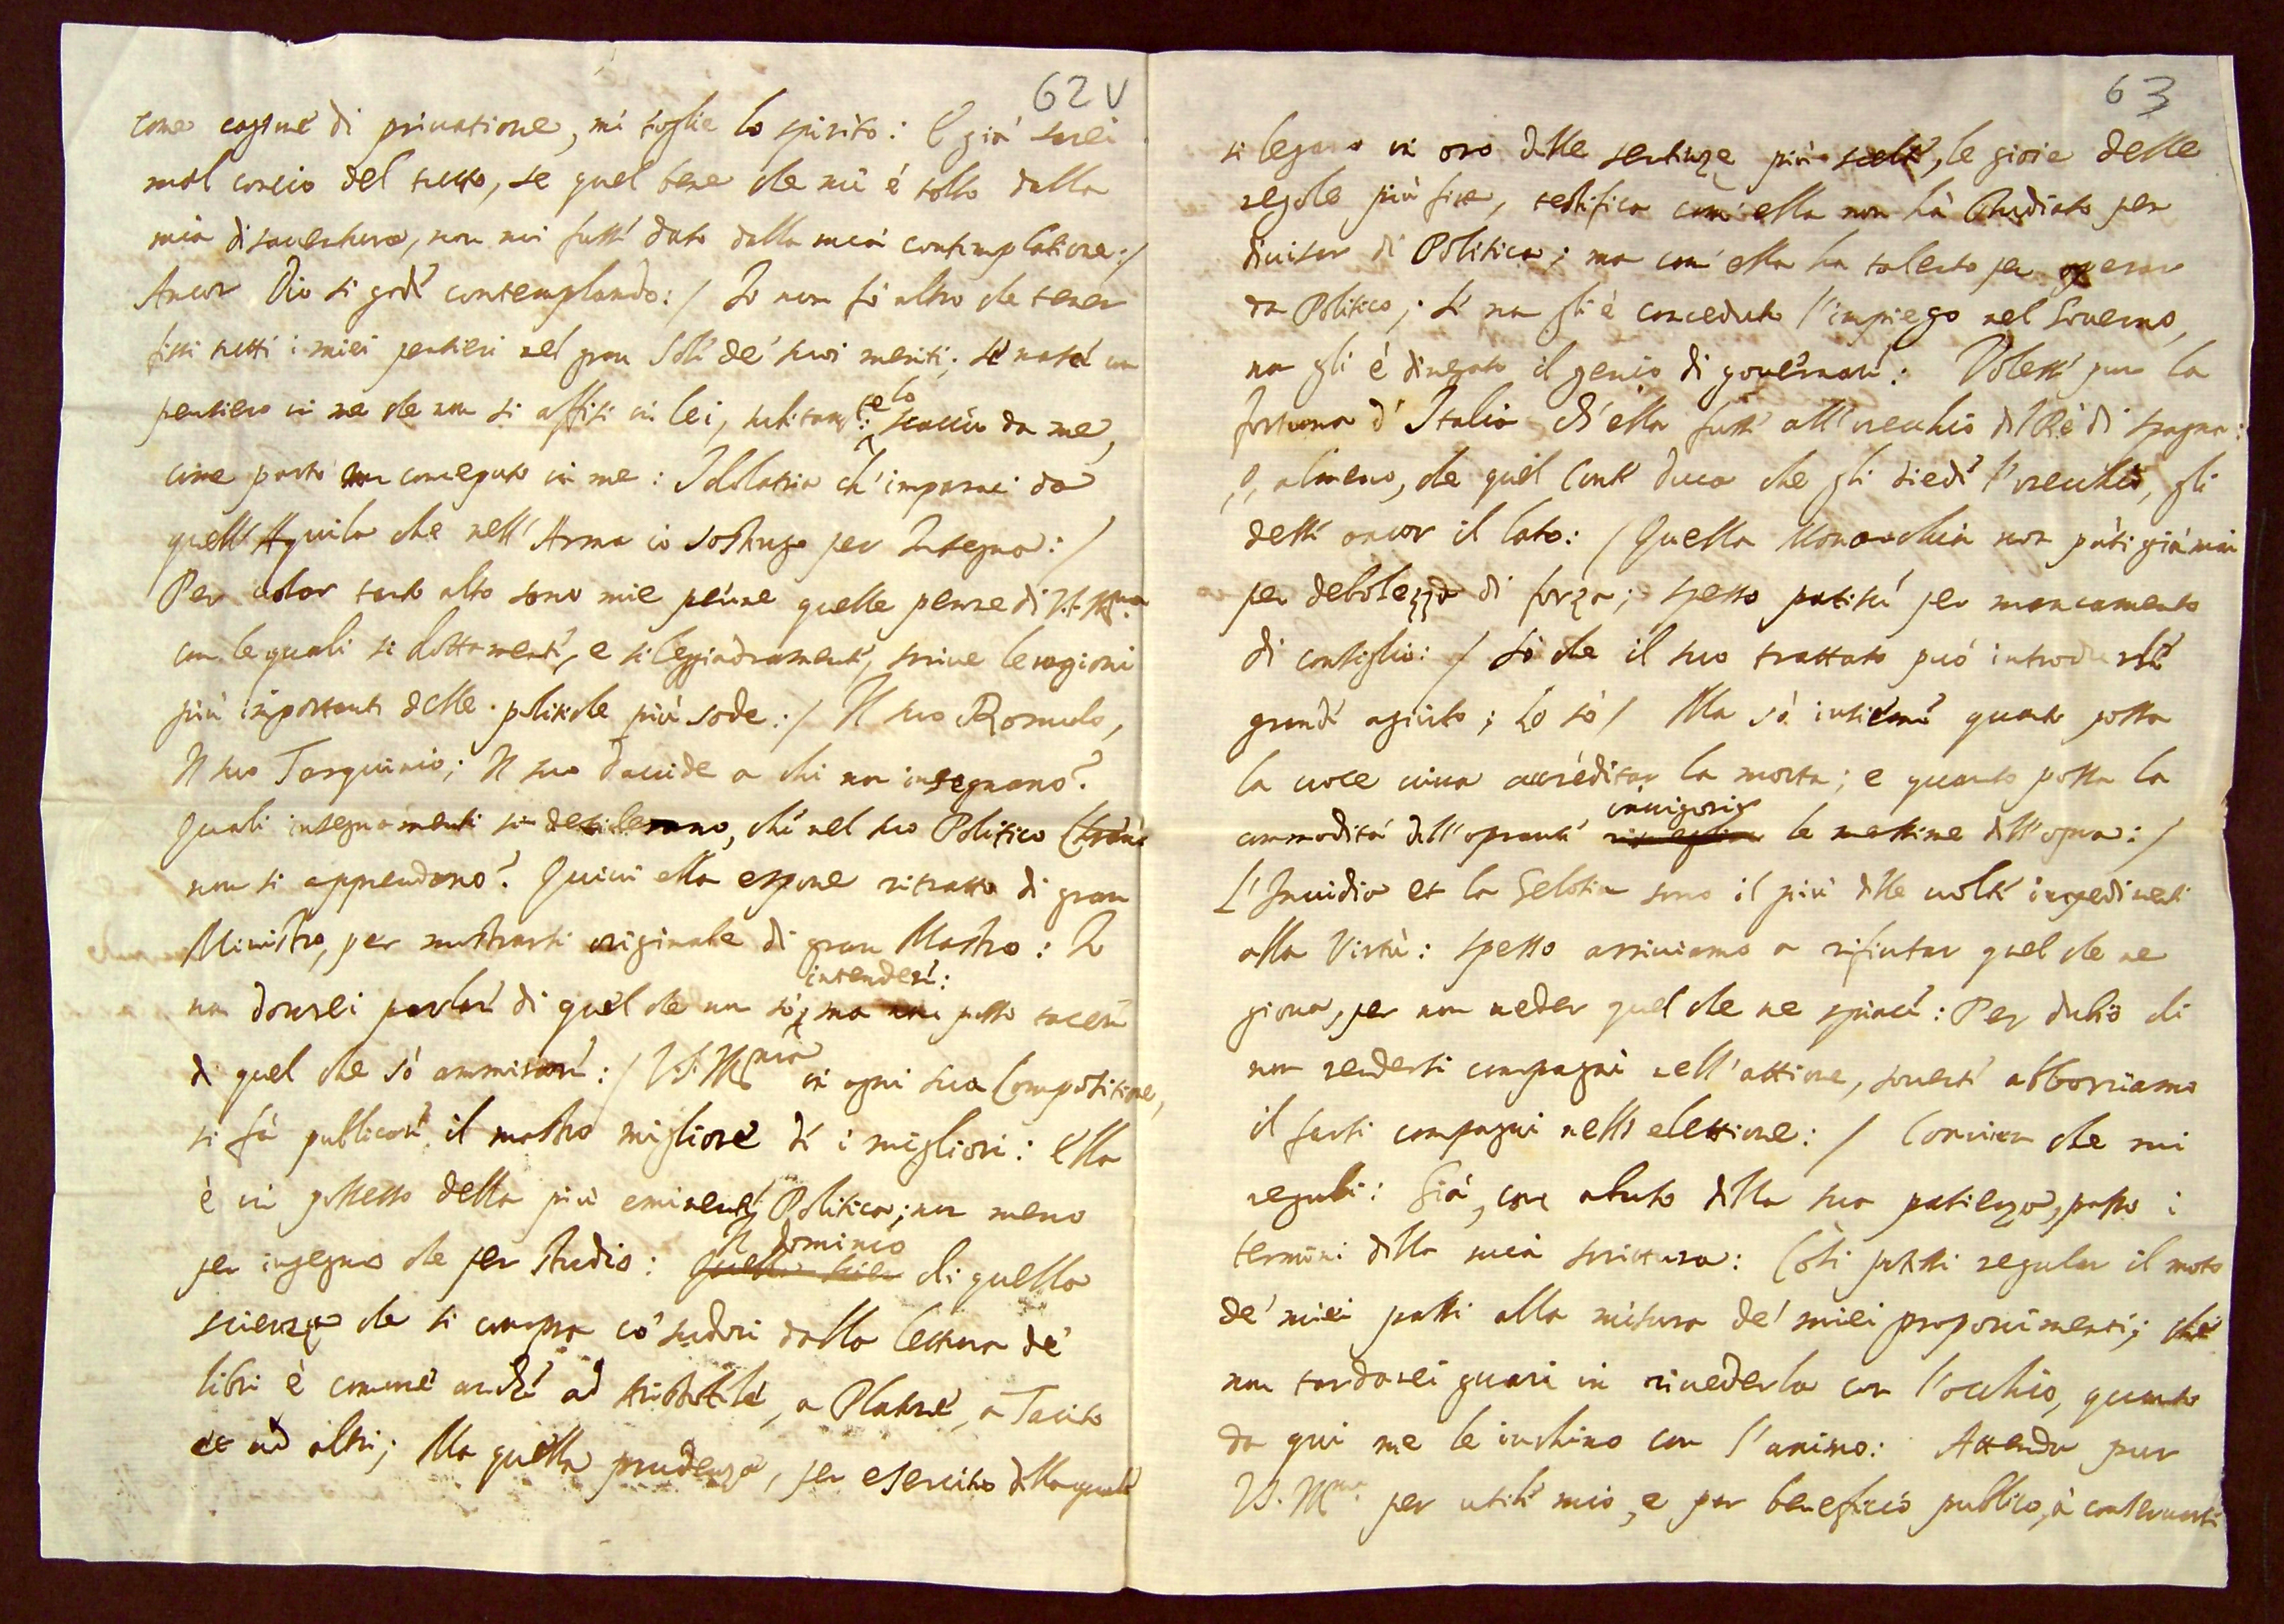 62v
come cagione di privatione, mi toglie lo spirito: E già sarei
mal concio del tutto, se quel bene che mi è tolto dalla
mia disauentura, non mi fusse dato dalla mia contemplatione:/
Ancor Dio si gode contemplando:/ Io non fò altro che tener
fissi tutti i miei pensieri nel gran Sole de' suoi meriti; se nasce un
pensiero in me che non si affisi in lei, subitamte lo scaccio da me,
come parto non conceputo in me: Idolatria ch' imparai da
quell' Aquila che nell' Arma io sostengo per Insegna:/
Per volar tant' alto sono mie penne quelle penne di V.S. Illma
con le quali si dottamente, e si leggiadramente, scriue le ragioni
più importanti delle politiche più sode:/ Il suo Romulo,
Il suo Tarquinio; Il suo Dauide a chi non insegnano?
Quali insegnamenti si desiderano, che nel suo Politico
non si apprendano? Quiui ella espone ritratto di gran
Ministro, per mostrarsi originale di gran Mastro: Io
non dourei parlare di quel che non sò intendere: ma non posso tacere
di quel che sò ammirare:/ V.S. Illma in ogni sua Compositione,
si fà publicare il mastro migliore di i migliori: Ella
è in possesso della più eminente Politica; non meno
per ingegno che per studio: Il dominio di quella
scienza che si compra co' sudori dalla lettura de'
libri è comune anche ad Aristotile, a Platone, a Tacito
et ad altri; Ma quella prudenza, per esercitio della quale
63
si legano in oro delle sentenze più scelte, le gioie delle
regole più fine, testifica com' ella non hà studiato per
diuisar di Politica; ma com' ella ha talento per operar
da Politico; Se non gli è conceduto l'impiego nel Gouerno,
non gli è dinegato il genio di gouernare: Volesse pur la
fortuna d' Italia ch' ella fusse all' orecchio del Rè di Spagna:
o, almeno, che quel Conte Duca che gli diede l'orecchio, gli
desse ancor il lato:/ Quella Monarchia non patì già mai
per debolezza di forza; spesso patisce per mancamento
di consiglio:/ Sò che il suo trattato può introdurle
grande agiuto; Lo sò/ Ma sò insieme quanto possa
la uoce uiua accreditar la morta; e quanto possa la
commodità dell' oprante inuigorir le massime dell' opra:/
L'Inuidia et la Gelosia sono il più delle uolte impedimenti
alla Virtù: Spesso arriuiamo a rifiutar quel che ne
gioua, per non ueder quel che ne spiace: Per dubio di
non rendersi compagni nell' attione, souente abborriamo
il farsi compagni nella elettione:/ Conuien che mi
regoli: Già, con abuto della sua patienza, passo i
termini della mia scrittura: Così potessi regular il moto
de' miei passi alla misura de' miei proponimenti; che
non tardarei guari in riuederla con l'occhio, quanto
da qui me le inchino con l'animo: Attenda pur
V.S. Illma per utile mio, e per beneficio publico, à conseruarsi